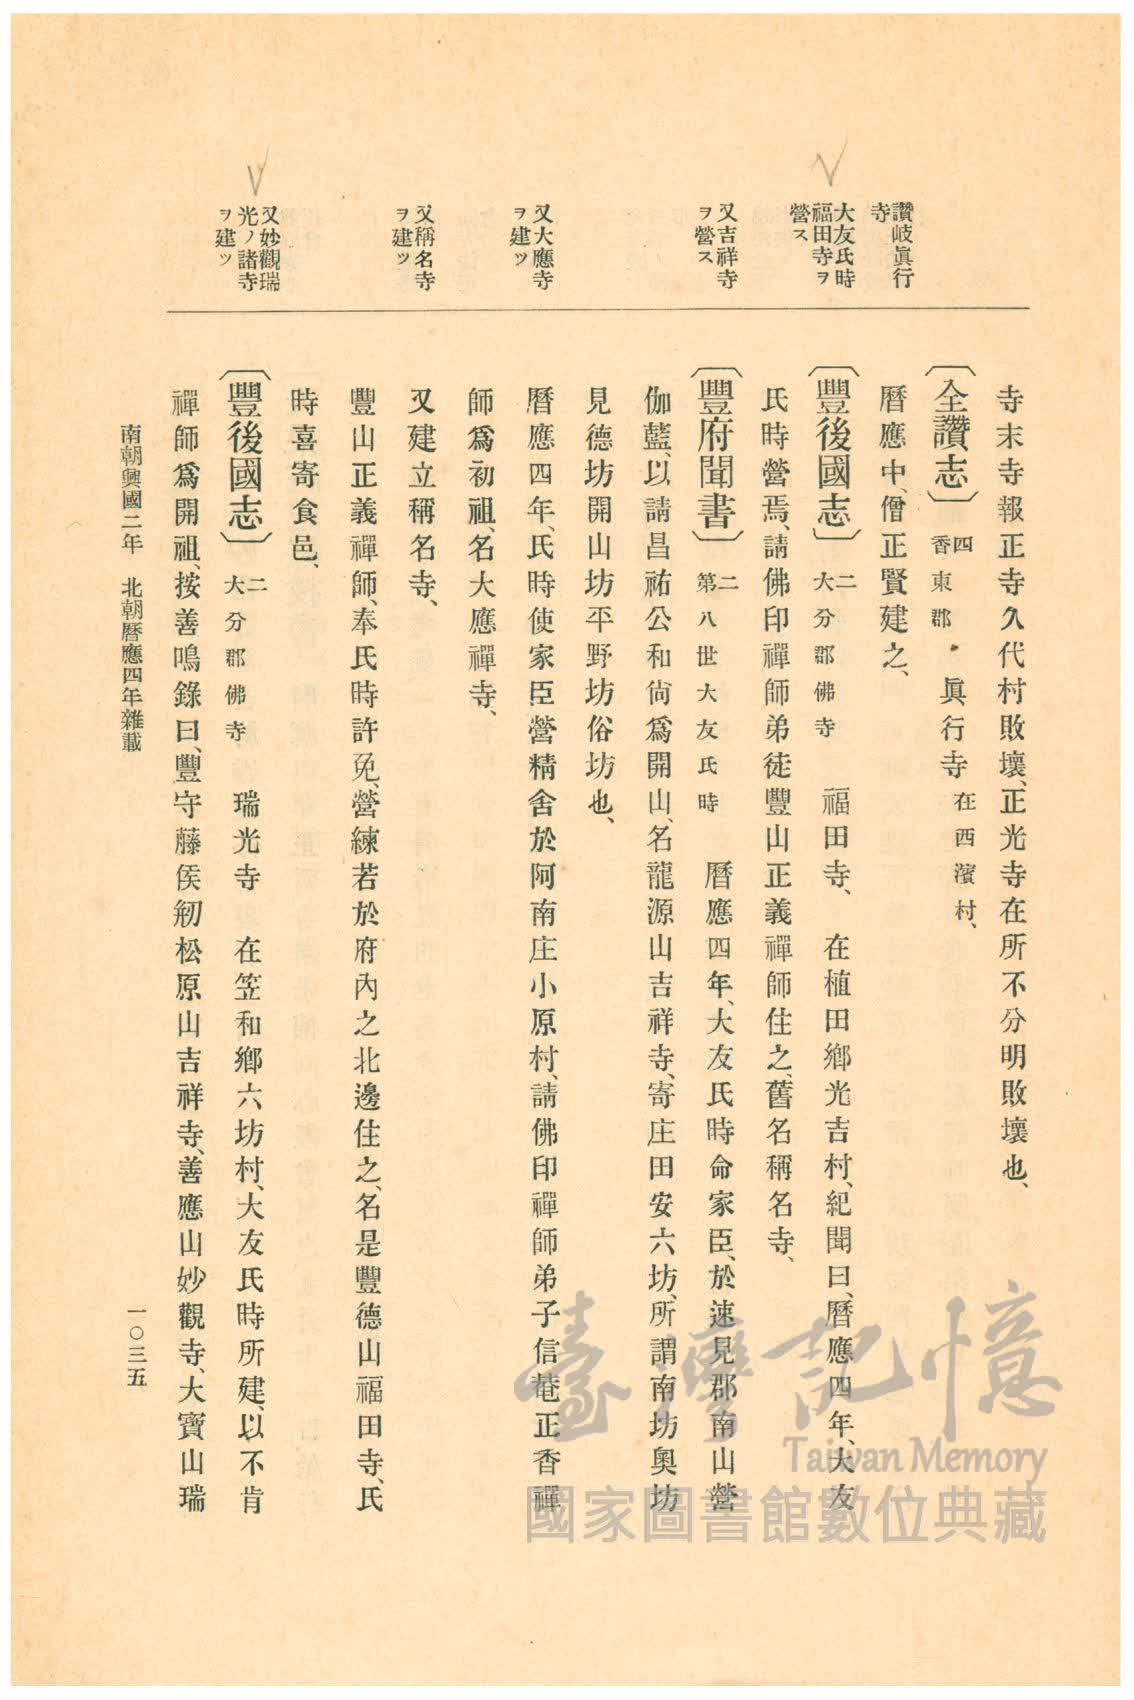 讚岐眞行
寺
大友氏時
福田寺ヲ
營ス
又吉祥寺
ヲ營ス
又大應寺
ヲ建ツ
又稱名寺
ヲ建ツ
又妙觀瑞
光ノ諸寺
ヲ建ツ
寺末寺報正寺久代村敗壞、正光寺在所不分明敗壞也、
〔全讚志〕四香東郡 眞行寺在西濱村、
曆應中、僧正賢建之、
〔豐後國志〕二大分郡佛寺 福田寺、 在植田鄉光吉村、紀聞曰、曆應四年、大友
氏時營焉、請佛印禪師弟徒豐山正義禪師住之、舊名稱名寺、
〔豐府聞書〕二第八世大友氏時 曆應四年、大友氏時命家臣、於速見郡南山營
伽藍、以請昌祐公和尙爲開山、名龍源山吉祥寺、寄庄田安六坊、所謂南坊奧坊
見德坊開山坊平野坊俗坊也、
曆應四年、氏時使家臣營精舍於阿南庄小原村、請佛印禪師弟子信菴正香禪
師爲初祖、名大應禪寺、
又建立稱名寺、
豐山正義禪師、奉氏時許免、營練若於府內之北邊住之、名是豐德山福田寺、氏
時喜寄食邑、
〔豐後國志〕二大分郡佛寺 瑞光寺 在笠和鄉六坊村、大友氏時所建、以不肯
禪師爲開祖、按善鳴錄曰、豐守藤侯剏松原山吉祥寺、善應山妙觀寺、大寶山瑞
南朝興國二年 北朝曆應四年雜載
一〇三五
臺灣記憶
Taiwan Memory
國家圖書館數位典藏